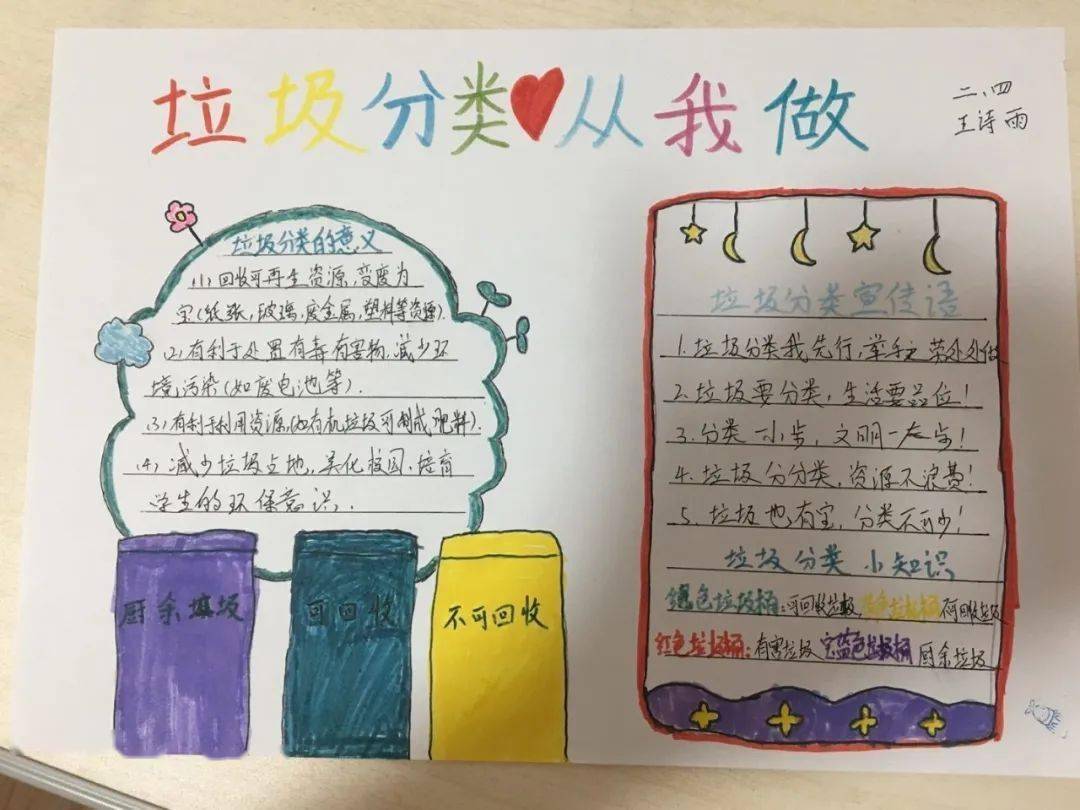 垃圾分类从我做
二、四
王诗雨
垃圾分类的意义
(1)回收可再生资源,变废为
宝(纸张,玻璃,废金属,塑料等资源).
(2)有利于处置有毒有害物,减少环
境污染(如废电池等).
(3)有利于利用资源,(如有机垃圾可制成肥料).
(4)减少垃圾占地,美化校园,培育
学生的环保意识.
厨余垃圾
可回收
不可回收
垃圾分类宣传语
1.垃圾分类我先行,举手之劳处处做
2.垃圾要分类,生活要品位!
3.分类一小步,文明一大步!
4.垃圾分分类,资源不浪费!
5.垃圾也有宝,分类不可少!
垃圾分类 小知识
绿色垃圾桶:可回收垃圾,黄色垃圾桶 不可回收垃圾
红色垃圾桶:有害垃圾 宝蓝色垃圾桶 厨余垃圾